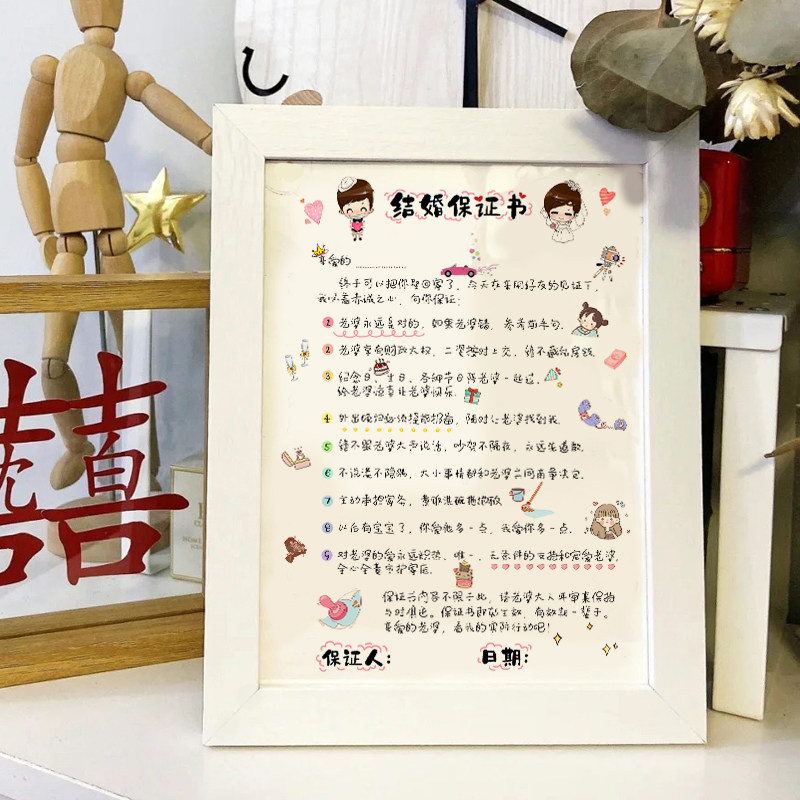 结婚保证书
亲爱的
终于可以把你娶回家了，今天在亲朋好友的见证下，
我以最赤诚之心，向你保证：
1 老婆永远是对的，如果老婆错，参考前半句.
2 老婆掌有财政大权，工资按时上交，绝不藏私房钱.
3 纪念日、生日、各种节日陪老婆一起过，
给老婆惊喜让老婆快乐.
4 外出晚归必须提前报备，随时让老婆找到我.
5 绝不跟老婆大声说话，吵架不隔夜，永远先道歉.
6 不说谎不隐瞒，大小事情都和老婆共同商量决定.
7 主动承担家务，煮饭洗碗拖地板
8 以后有宝宝了，你爱他多一点，我爱你多一点.
9 对老婆的爱永远炽热、唯一，无条件的支持和宠爱老婆，
全心全意守护家庭.
保证书内容不限于此，请老婆大人年审来保持
与时俱进。保证书即刻生效，有效期一辈子。
亲爱的老婆，看我的实际行动吧！
保证人：
日期：
囍